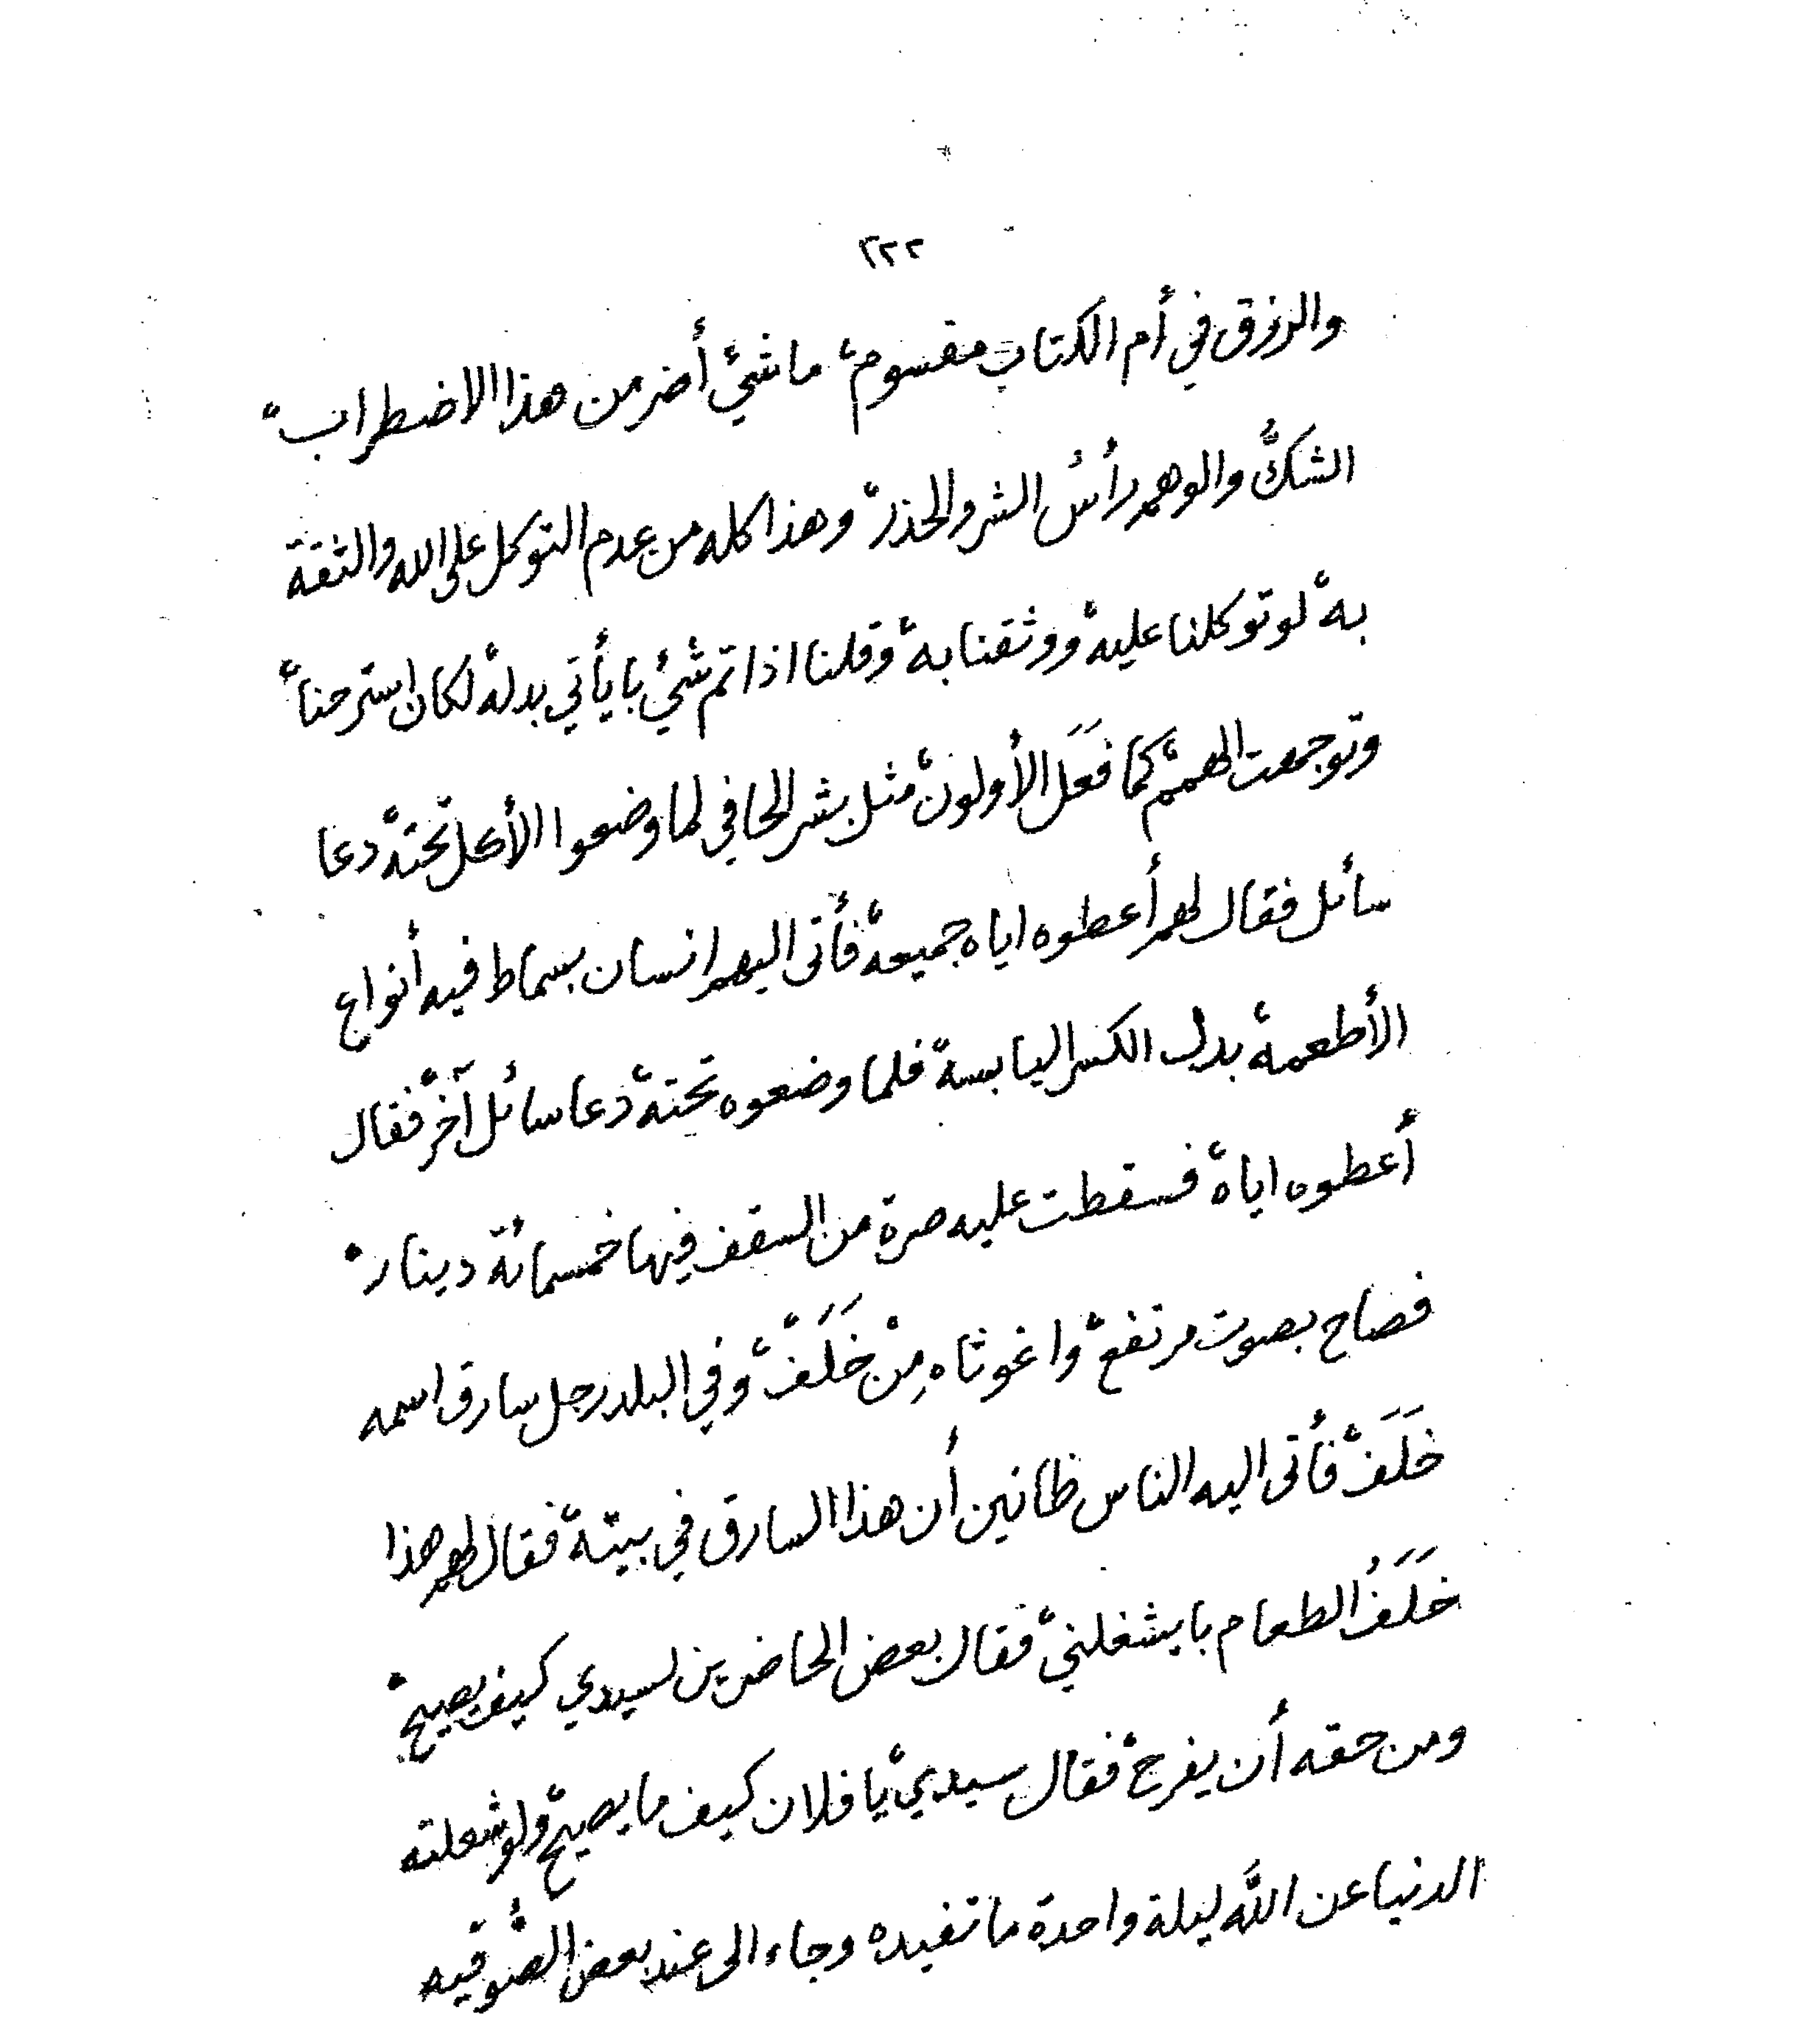 ٢٢٢
والرزق في أم الكتاب مقسوم، ما شيئ أضر من هذا الاضطراب،
الشك والوهم رأس الشر والحذر، وهذا كله من عدم التوكل على الله والثقة
به، لو توكلنا عليه، ووثقنا به، وقلنا اذا تم شيئ بايأتي بدله، لكان استرحنا،
وتوجمعت الهمم، كما فَعَل الأولون، مثل بشر الحافي لما وضعوا الأكل تحته، دعا
سائل فقال لهم أعطوه اياه جميعه، فأتى اليهم انسان بسماط فيه أنواع
الأطعمة، بدل الكسر اليابسة، فلما وضعوه تحته، دعا سائل آخر، فقال
أعطوه اياه، فسقطت عليه صرة من السقف فيها خمسمائة دينار،
فصاح بصوت مرتفع، واغوثاه مِنْ خَلَفْ، وفي البلد رجل سارق اسمه
خَلَفْ، فأتى اليه الناس ظانين أن هذا السارق في بيته، فقال لهم هذا
خَلَفُ الطعام بايشغلني، فقال بعض الحاضرين لسيدي كيف يصيح،
ومن حقه أن يفرح، فقال سيدي، يا فلان كيف ما يصيح، ولو شغلته
الدنيا عن الله ليلة واحدة ما تفيده وجاء الى عند بعض الصُّوفيه